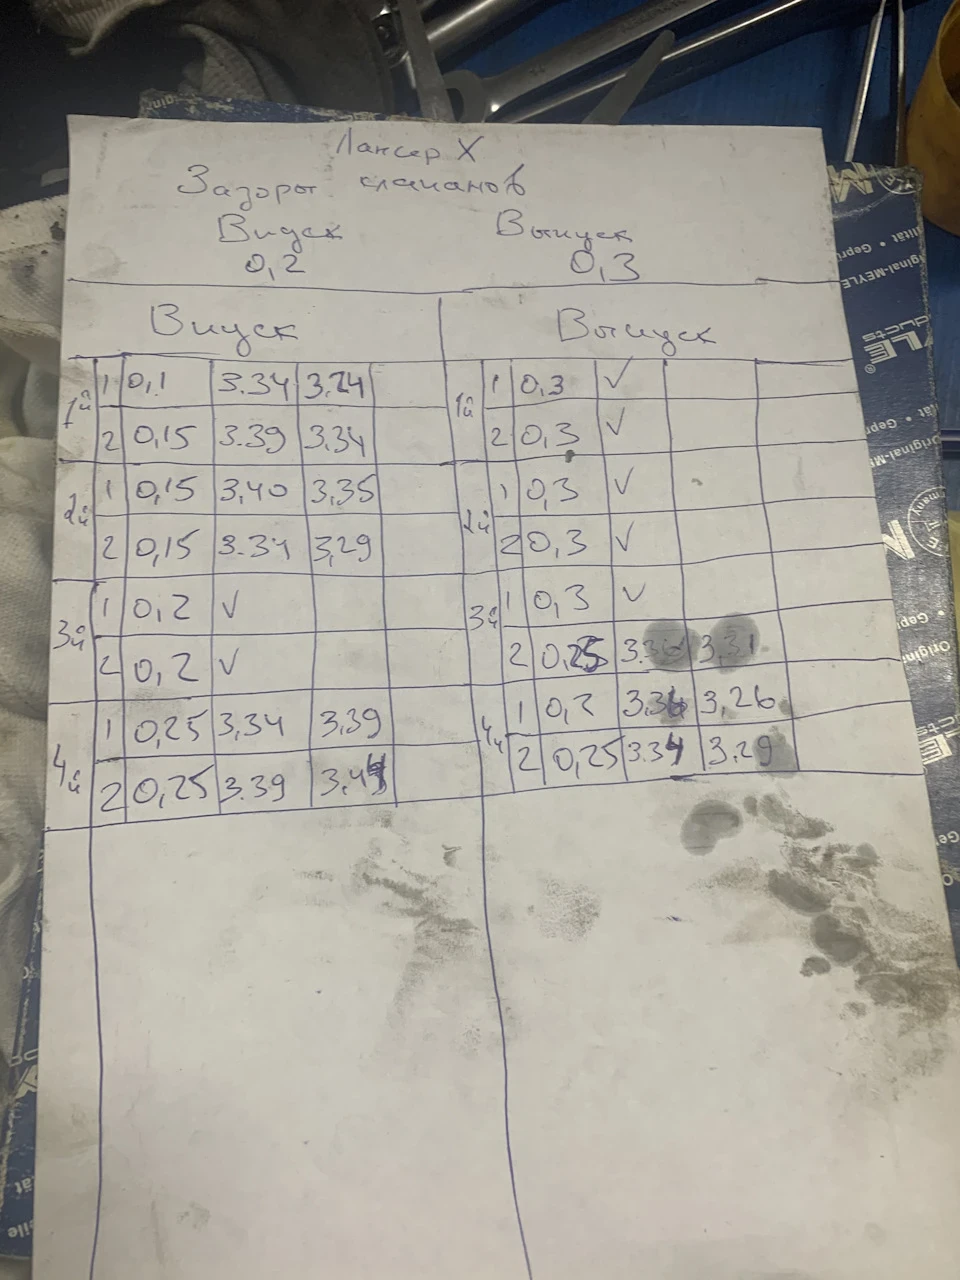 Лансер X
Зазоры клапанов
Впуск Выпуск
0,2 0,3
Впуск Выпуск
1й 1 0,1 3.34 3,24 1й 1 0,3 ✓
2 0,15 3.39 3,34 2 0,3 ✓
2й 1 0,15 3,40 3,35 2й 1 0,3 ✓
2 0,15 3.34 3,29 2 0,3 ✓
3й 1 0,2 ✓ 3й 1 0,3 ✓
2 0,2 ✓ 2 0,25 3.36 3,31
4й 1 0,25 3,34 3,39 4й 1 0,2 3.36 3,26
2 0,25 3.39 3,44 2 0,25 3.34 3.29
Original-MEYLE